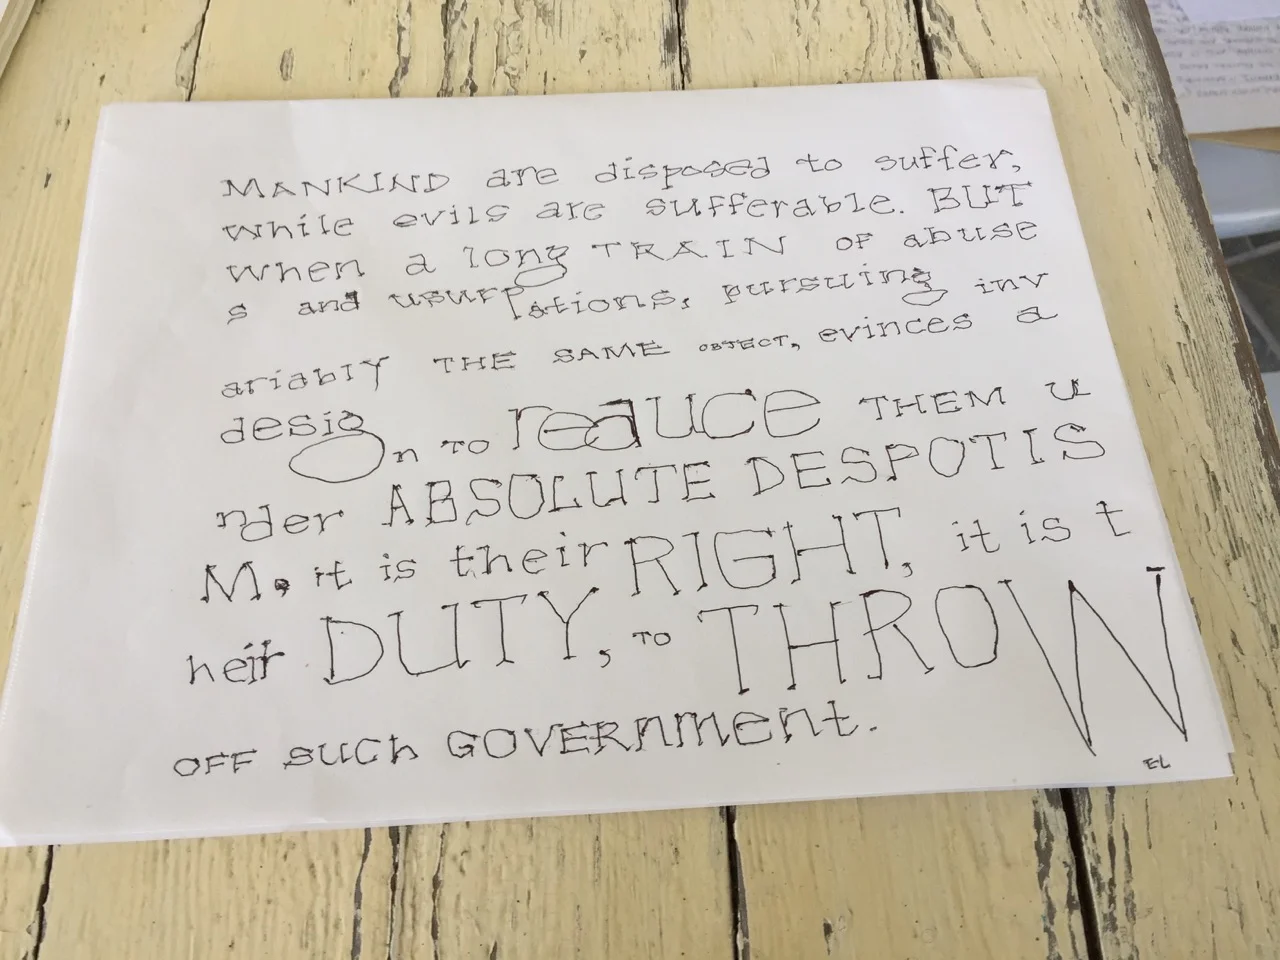 MANKIND are disposed to suffer,
while evils are sufferable. BUT
when a long TRAIN OF abuse
s and usurpations, pursuing inv
ariably THE SAME OBJECT, evinces a
design TO reduce THEM u
nder ABSOLUTE DESPOTIS
M, it is their RIGHT, it is t
heir DUTY, TO THROW
OFF such GOVERnment.
EL